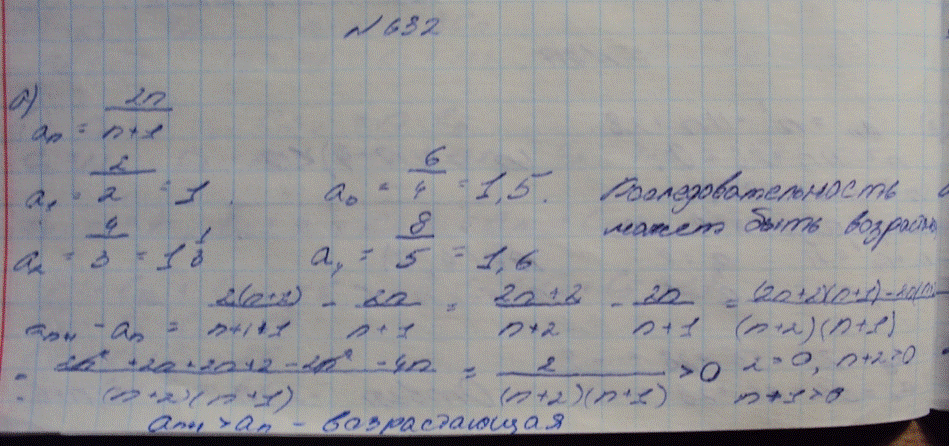 №632
а) aₙ = 2n/(n+1)
a₁ = 2/2 = 1. a₃ = 6/4 = 1,5. Последовательность
a₂ = 4/3 = 1 1/3 a₄ = 8/5 = 1,6 может быть возраст
aₙ₊₁ - aₙ = 2(n+1)/(n+1+1) - 2n/(n+1) = (2n+2)/(n+2) - 2n/(n+1) = ((2n+2)(n+1) - 2n(n
= (2n² + 2n + 2n + 2 - 2n² - 4n)/((n+2)(n+1)) = 2/((n+2)(n+1)) > 0 2>0, n+2>0
n+1>0
aₙ₊₁ > aₙ - возрастающая